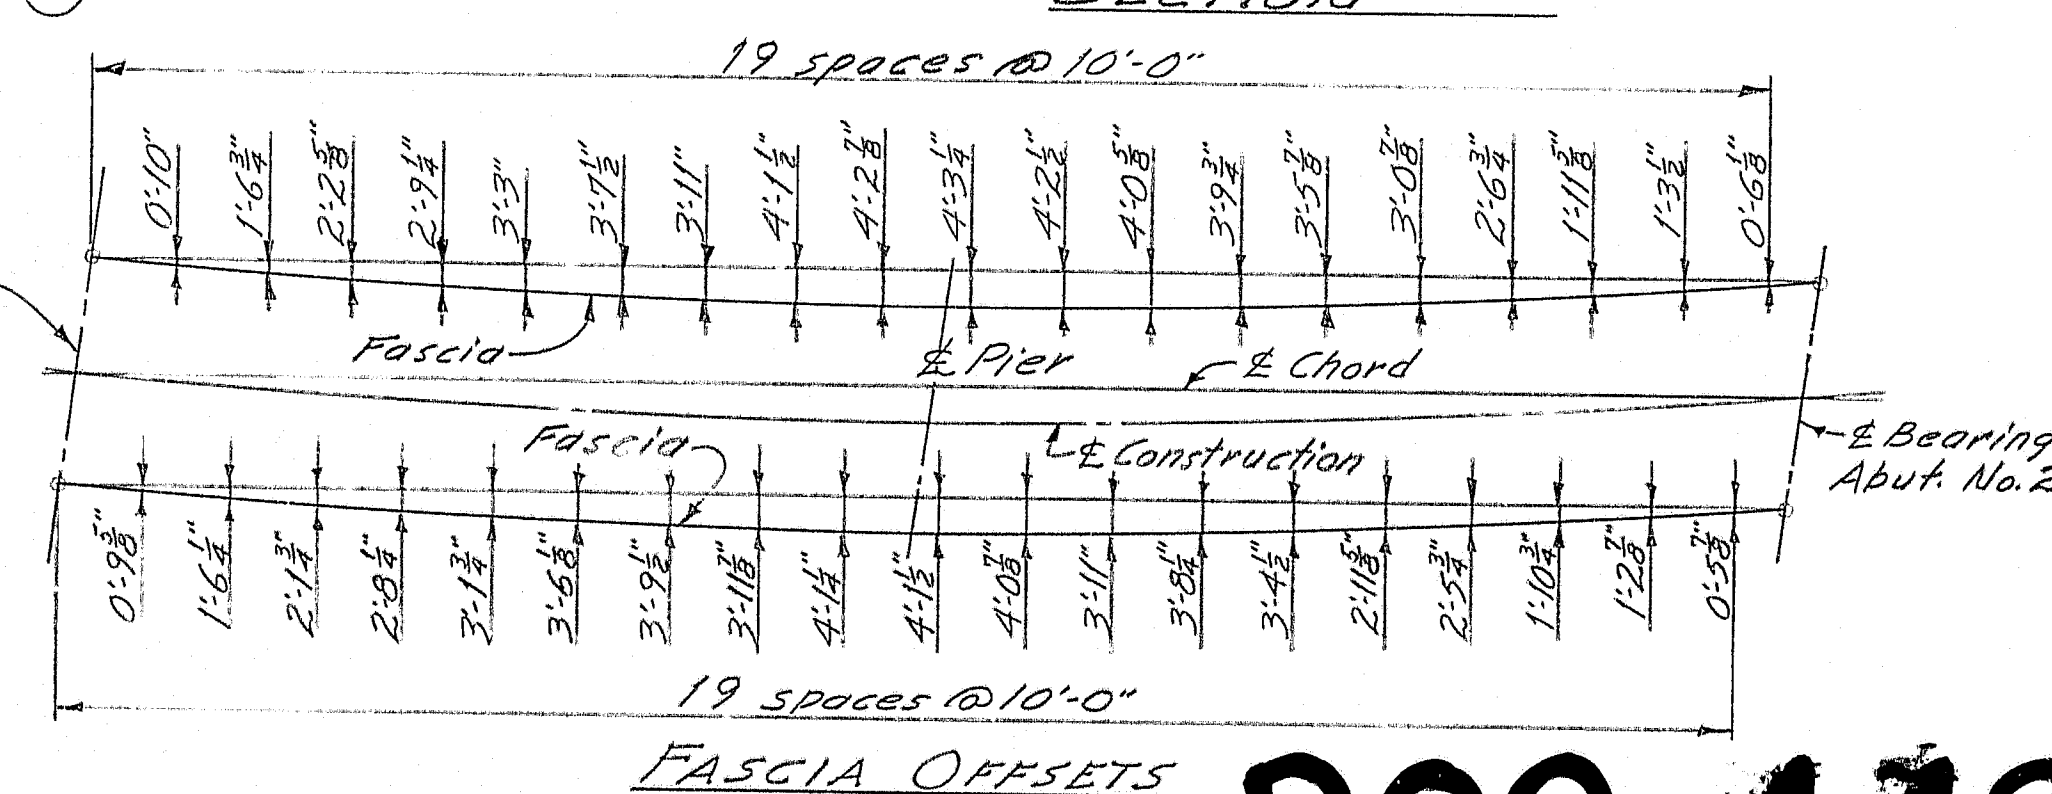 SECTION
19 spaces @ 10'-0"
0'-10"
1'-6 3/4"
2'-2 5/8"
2'-9 1/4"
3'-3"
3'-7 1/2"
3'-11"
4'-1 1/2"
4'-2 7/8"
4'-3 1/4"
4'-2 1/2"
4'-0 5/8"
3'-9 3/4"
3'-5 7/8"
3'-0 7/8"
2'-6 3/4"
1'-11 5/8"
1'-3 1/2"
0'-6 1/8"
Fascia
℄ Pier
℄ Chord
Fascia
℄ Construction
℄ Bearing
Abut. No. 2
0'-9 5/8"
1'-6 1/4"
2'-1 3/4"
2'-8 1/4"
3'-1 3/4"
3'-6 1/8"
3'-9 1/2"
3'-11 7/8"
4'-1 1/4"
4'-1 1/2"
4'-0 7/8"
3'-11"
3'-8 1/4"
3'-4 1/2"
2'-11 5/8"
2'-5 3/4"
1'-10 3/4"
1'-2 7/8"
0'-5 7/8"
19 spaces @ 10'-0"
FASCIA OFFSETS